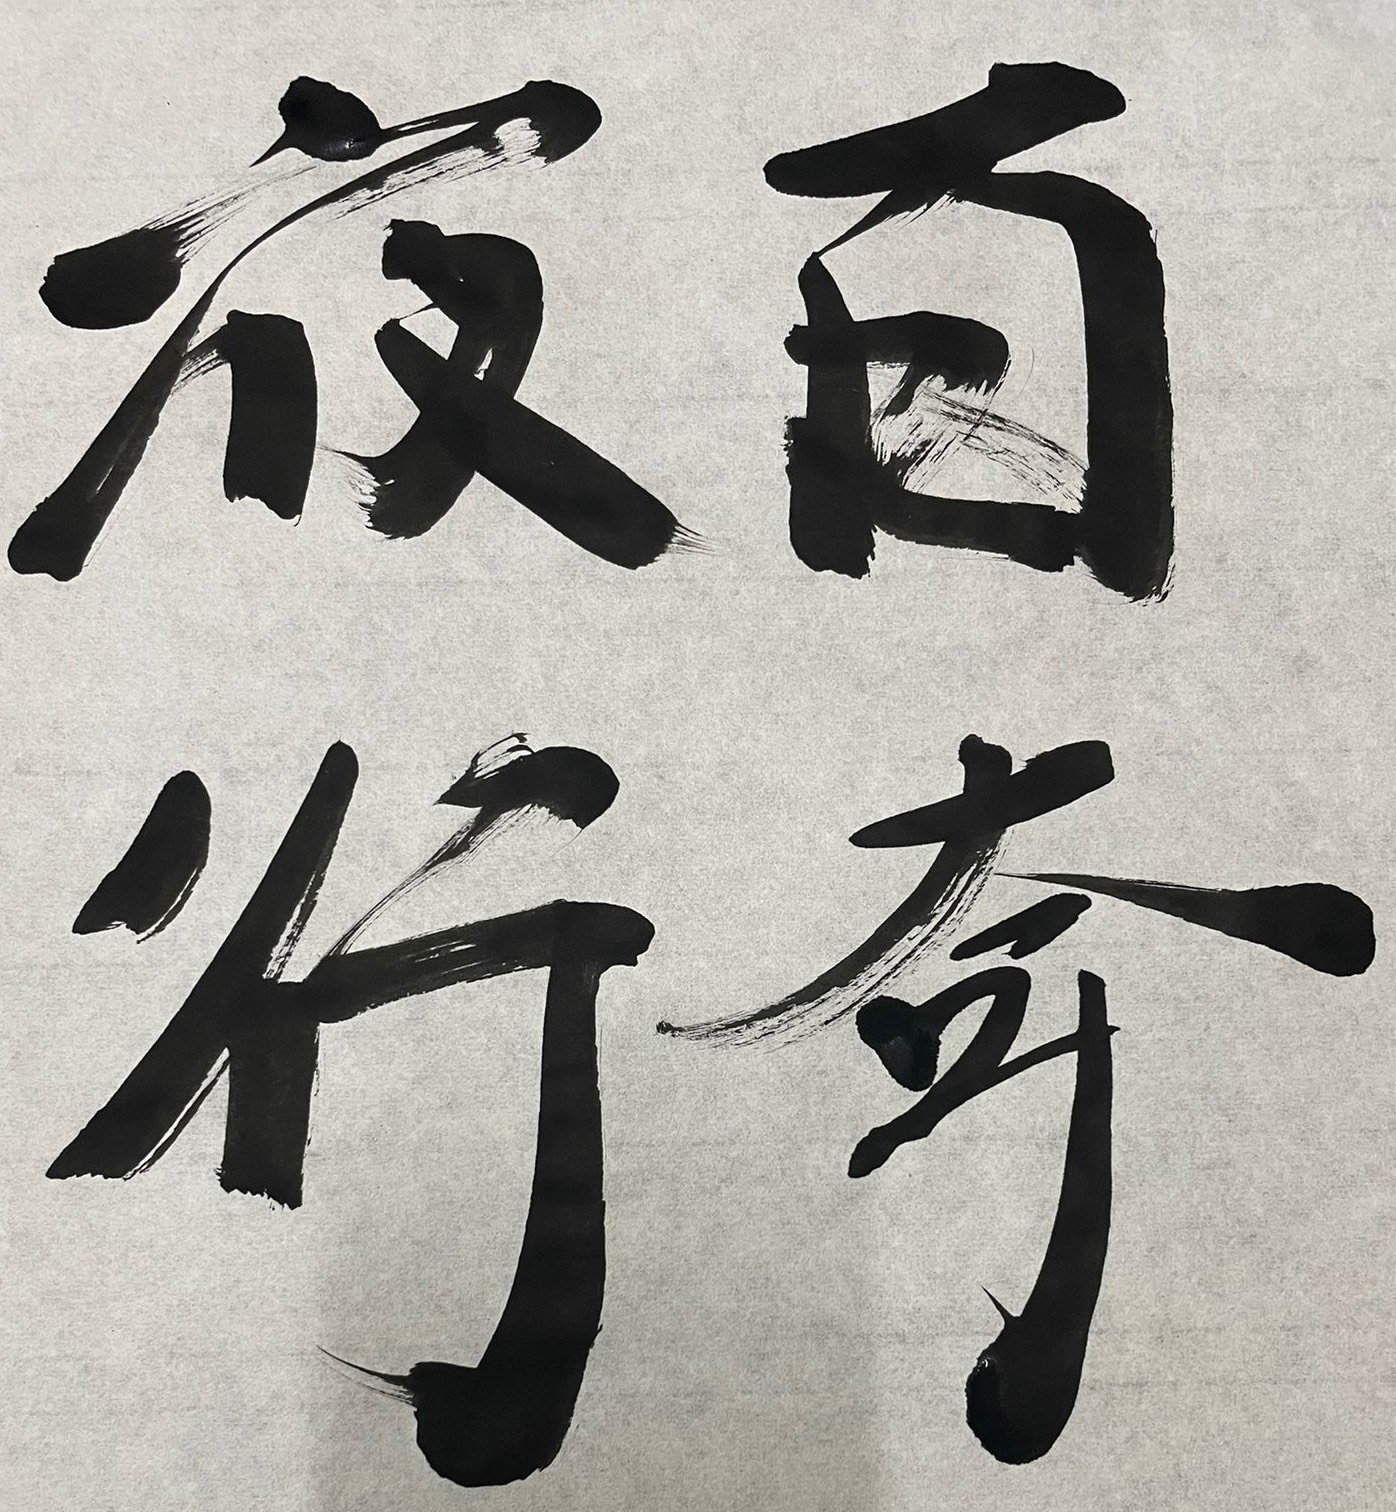 百奇
夜行